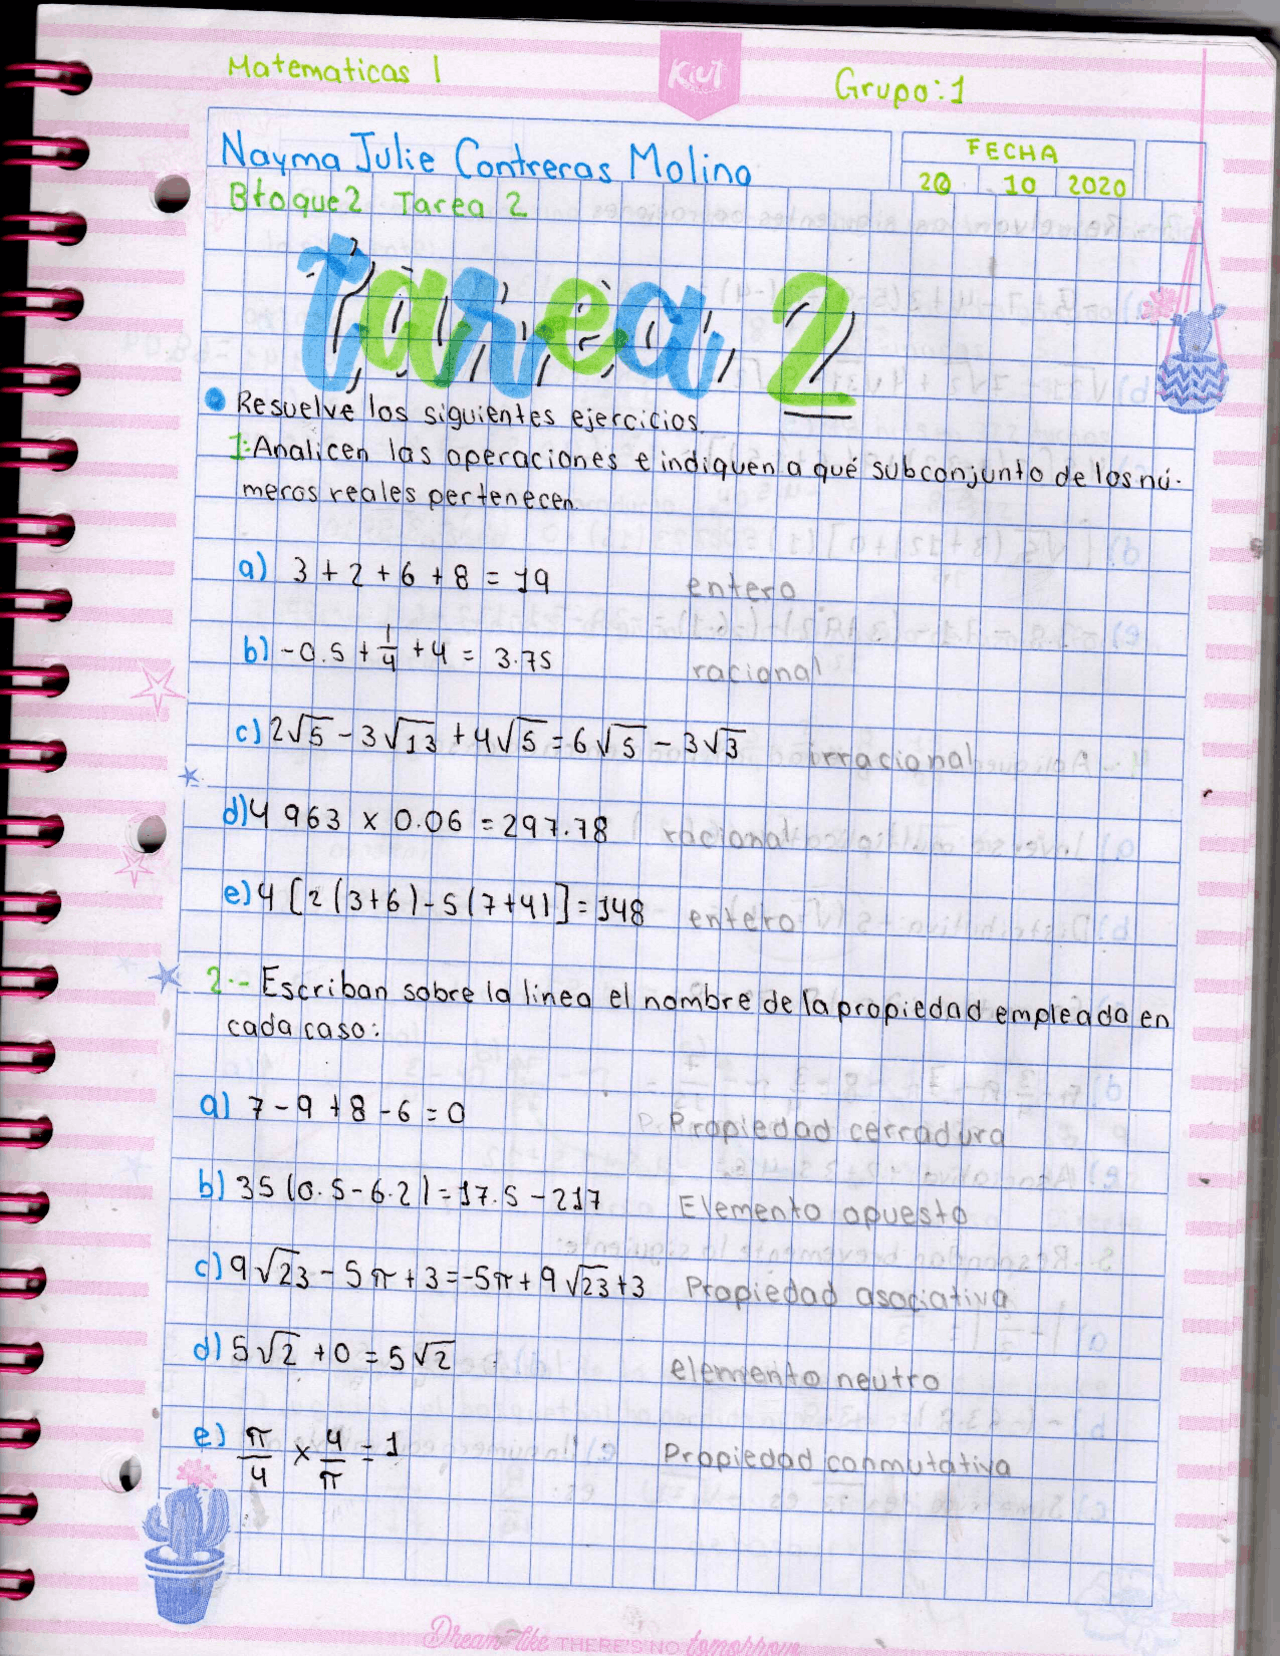 Matematicas 1
Kiut
Grupo: 1
Nayma Julie Contreras Molina
FECHA
20 10 2020
Bloque 2 Tarea 2
tarea 2
Resuelve los siguientes ejercicios.
1: Analicen las operaciones e indiquen a qué subconjunto de los nú-
meros reales pertenecen.
a) 3 + 2 + 6 + 8 = 19 entero
b) -0.5 + 1/4 + 4 = 3.75 racional
c) 2√5 - 3√13 + 4√5 = 6√5 - 3√3 irracional
d) 4 963 x 0.06 = 297.78 racional
e) 4 [2 (3+6) - 5 (7+4)] = 148 entero
2.- Escriban sobre la linea el nombre de la propiedad empleada en
cada caso:
a) 7 - 9 + 8 - 6 = 0 Propiedad cerradura
b) 35 (0.5 - 6.2) = 17.5 - 217 Elemento opuesto
c) 9√23 - 5π + 3 = -5π + 9√23 + 3 Propiedad asociativa
d) 5√2 + 0 = 5√2 elemento neutro
e) π/4 x 4/π = 1 Propiedad conmutativa
Dream like THERE'S NO tomorrow